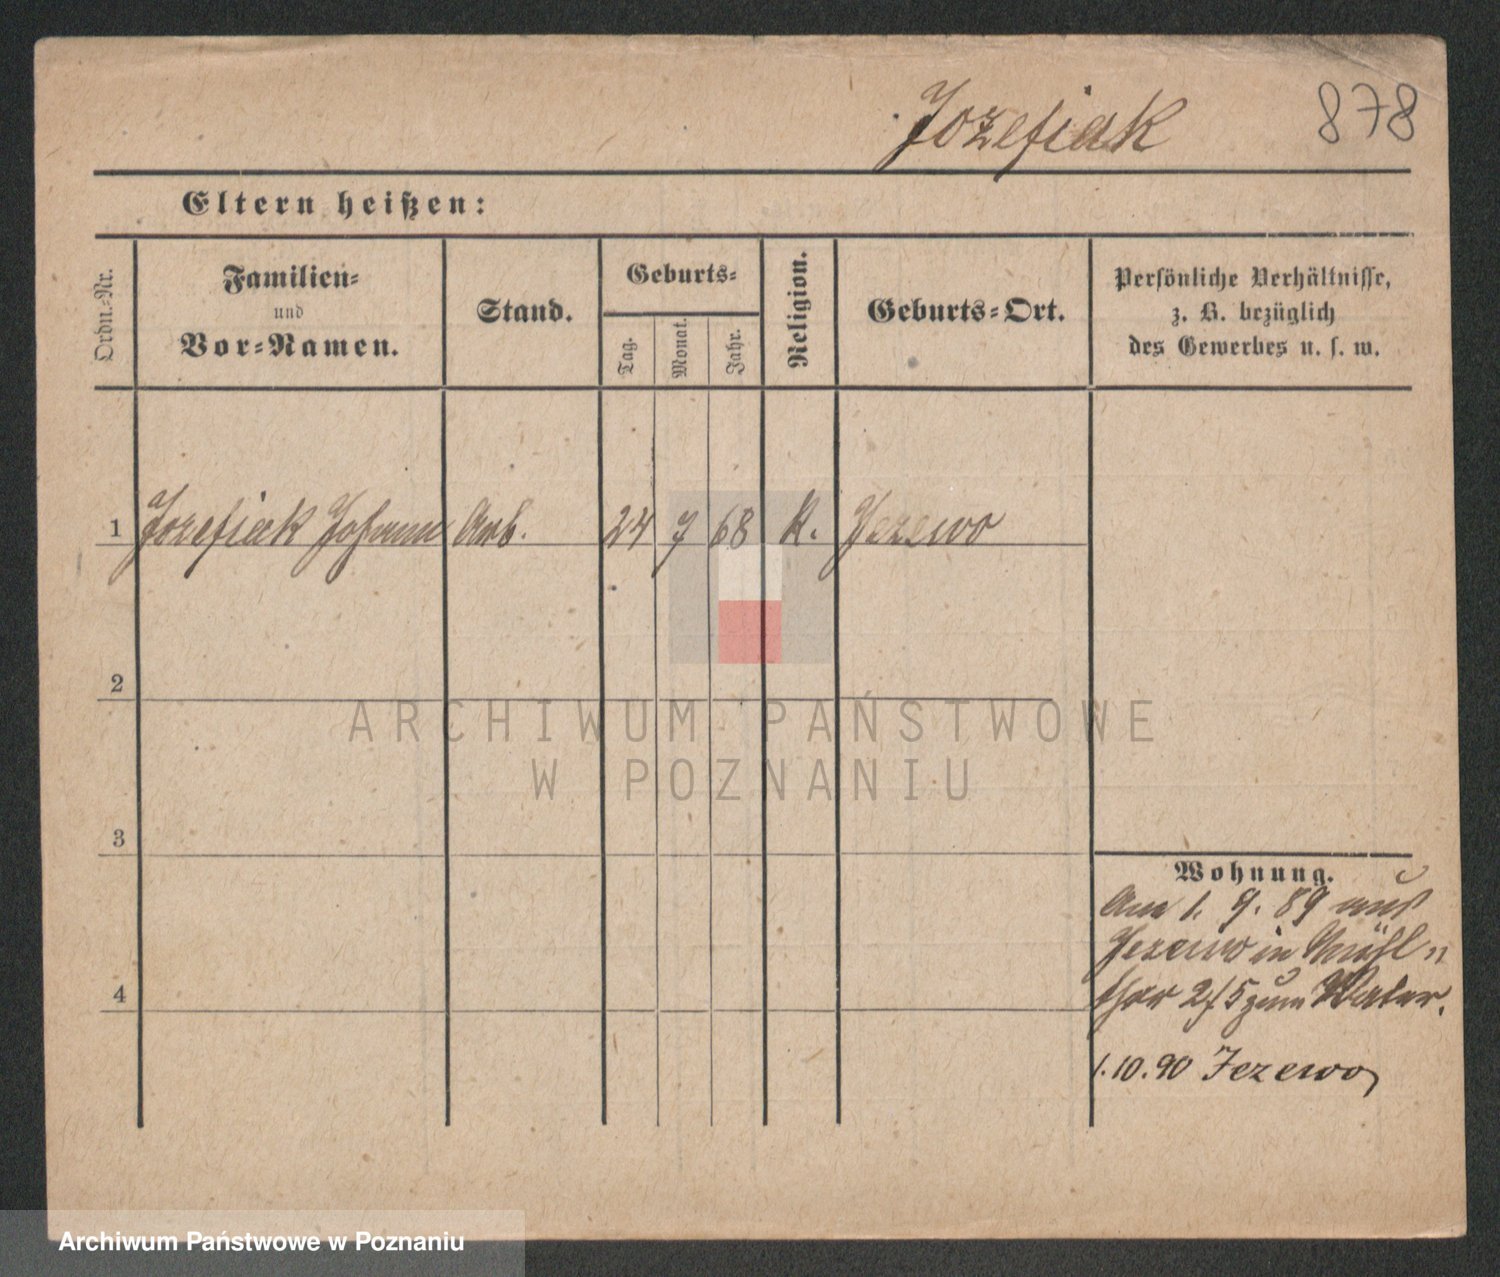 Jozefiak
878
Eltern heißen:
Ordn.-Nr.
Familien-
und
Vor-Namen.
Stand.
Geburts-
Tag.
Monat.
Jahr.
Religion.
Geburts-Ort.
Persönliche Verhältnisse,
z. B. bezüglich
des Gewerbes u. s. w.
1 Jozefiak Johann Arb. 24 7 68 K. Jezewo
2
3
4
Wohnung.
Am 1. 9. 89 aus
Jezewo in Mühl-
thor 2/5 zum Vater.
1.10.90 Jezewo
ARCHIWUM PAŃSTWOWE
W POZNANIU
Archiwum Państwowe w Poznaniu